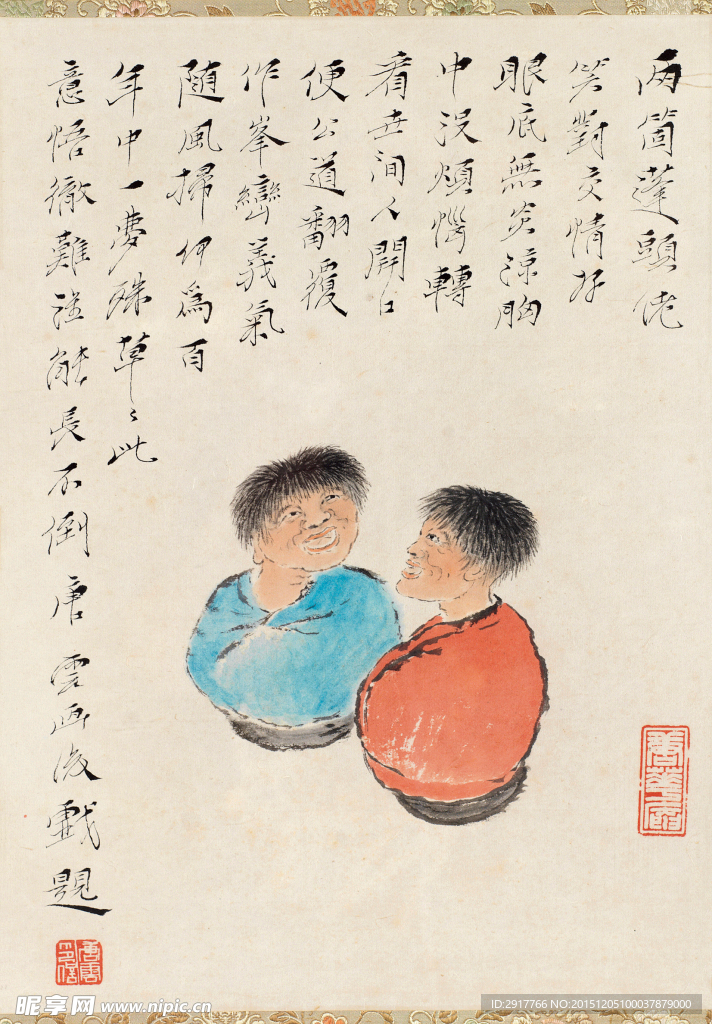 两箇蓬頭佬
笑對交情好
眼底無炎涼胸
中没煩惱轉
看世间人開口
便公道翻覆
作峯巒義氣
随風掃何為百
年中一夢殊草〻此
意悟徹難誰能長不倒唐雲画後戲題
唐雲印信
昵享网 www.nipic.cn
ID:2917766 NO:20151205100037879000